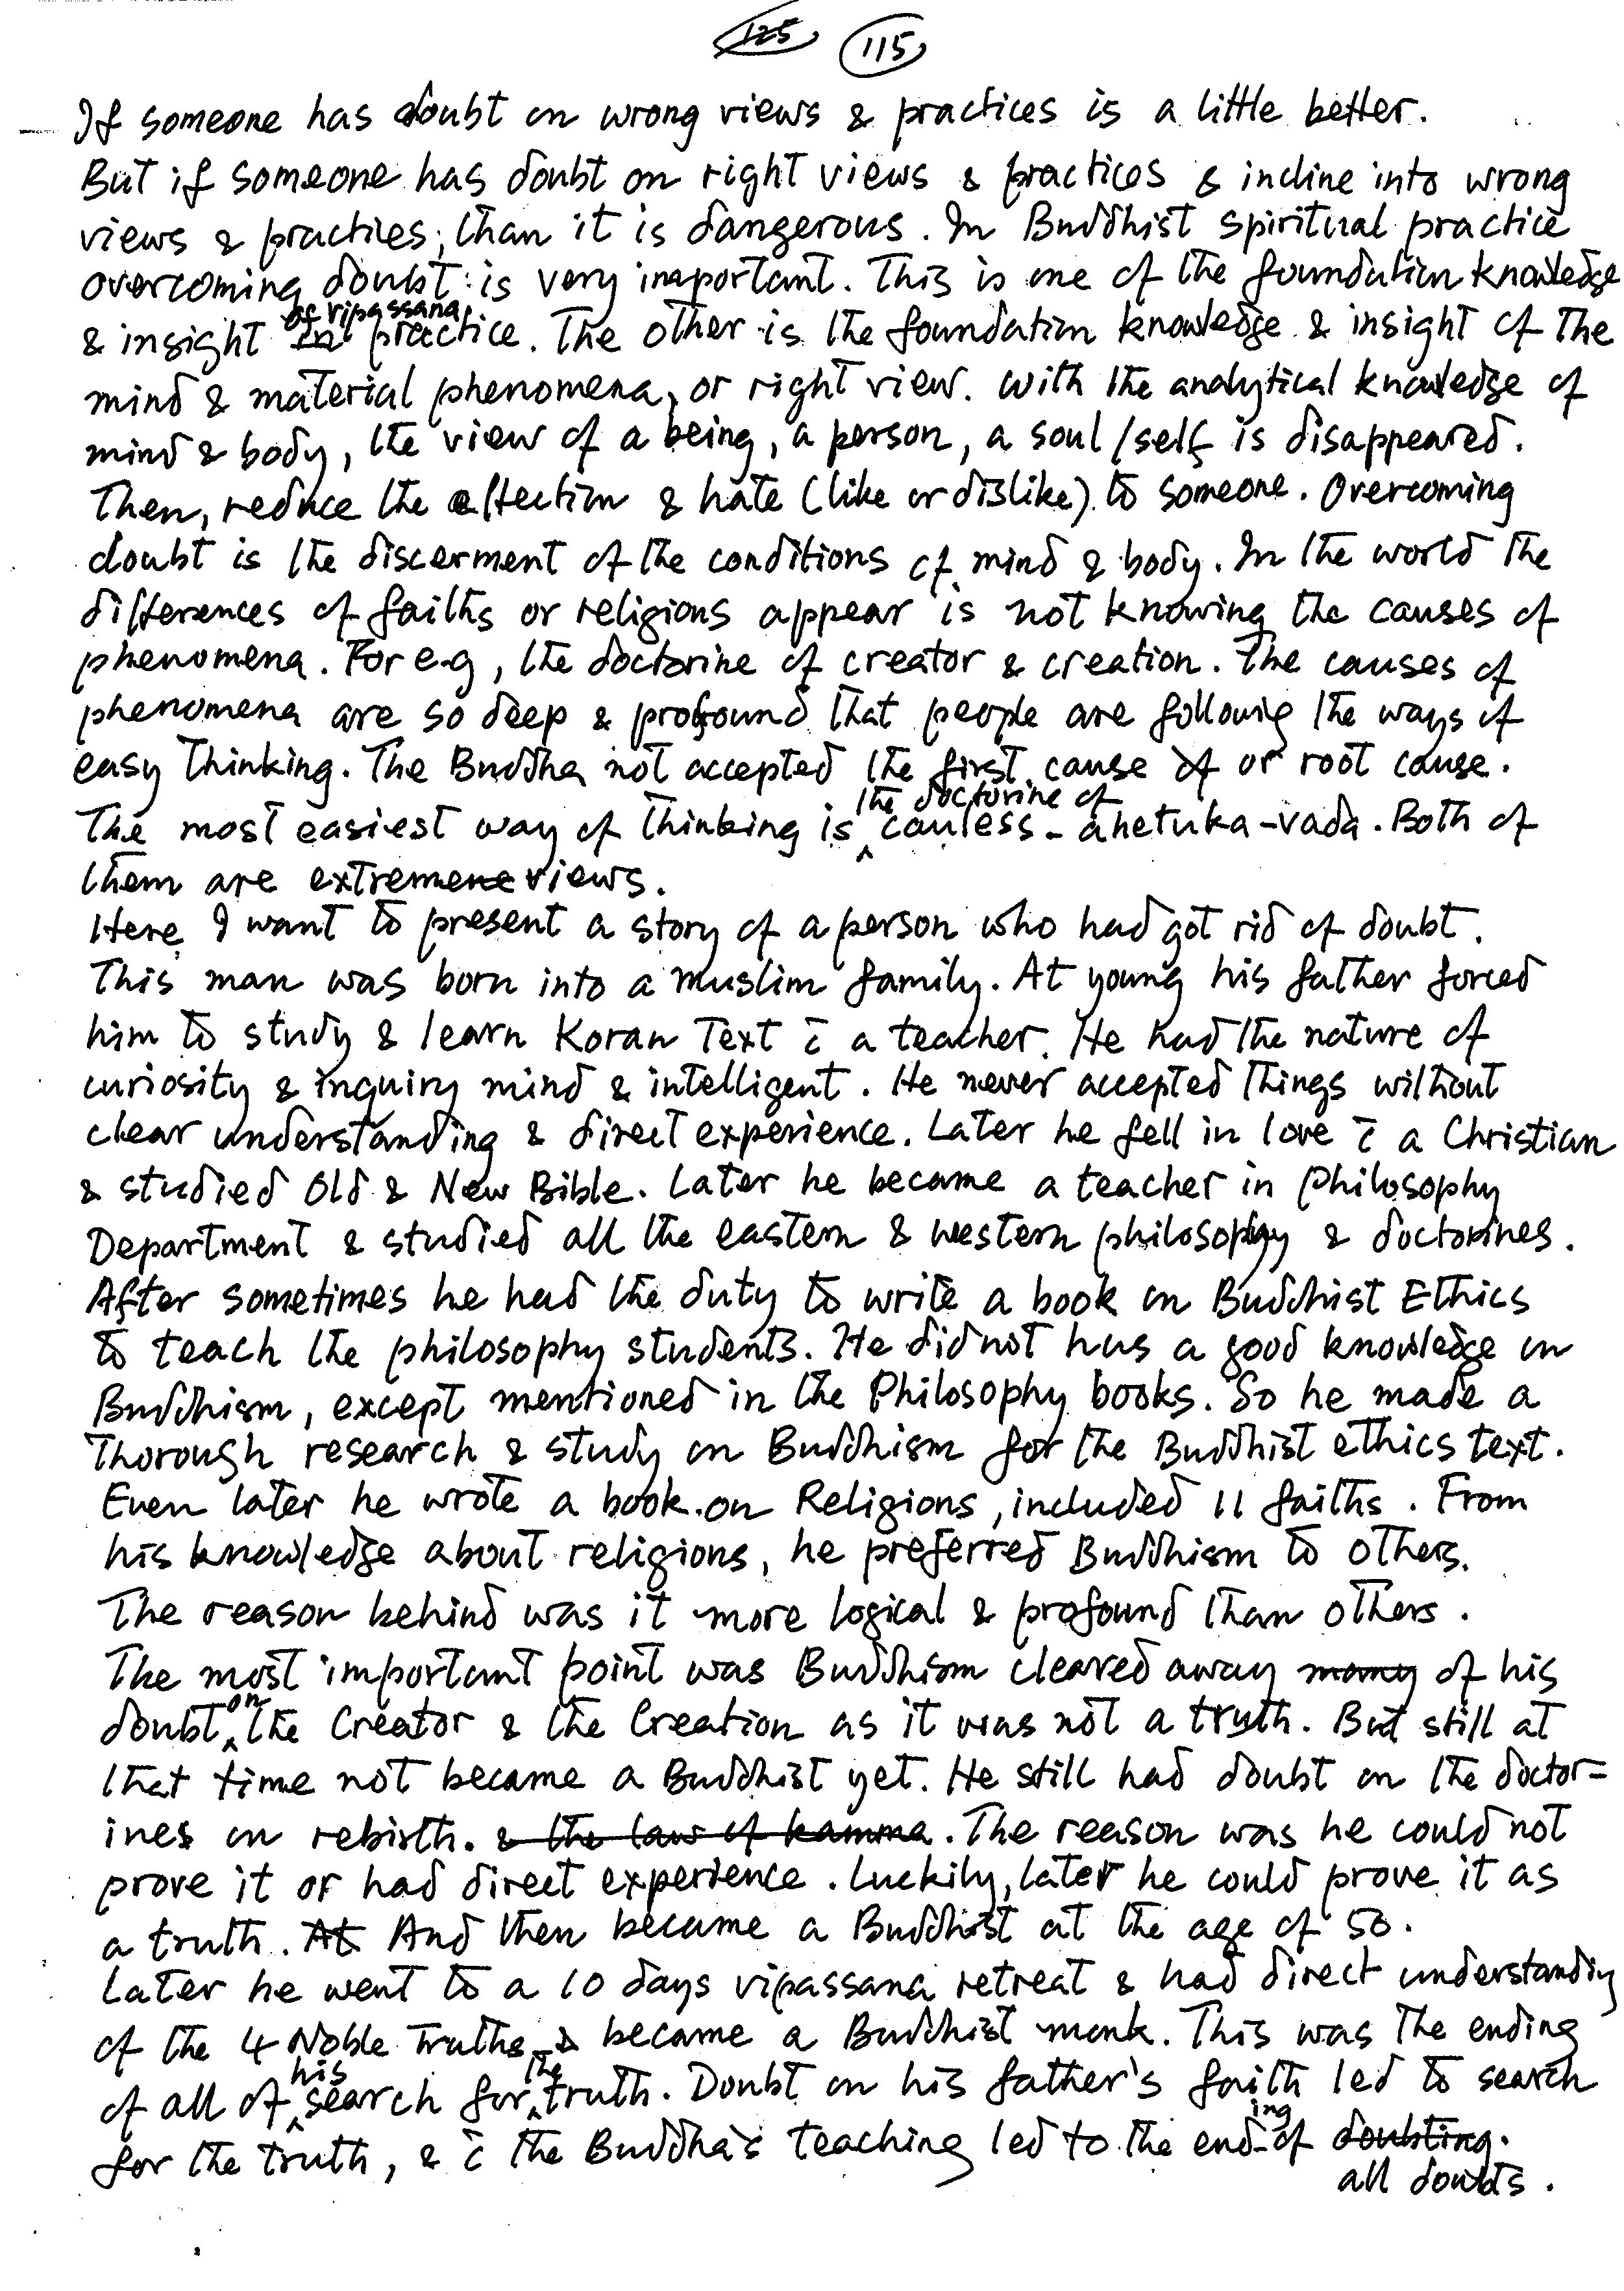 125 115
If someone has doubt on wrong views & practices is a little better.
But if someone has doubt on right views & practices & incline into wrong
views & practices, than it is dangerous. In Buddhist spiritual practice
overcoming doubt is very important. This is one of the foundation knowledge
& insight of vipassana practice. The other is the foundation knowledge & insight of the
mind & material phenomena, or right view. With the analytical knowledge of
mind & body, the view of a being, a person, a soul/self is disappeared.
Then, reduce the affection & hate (like or dislike) to someone. Overcoming
doubt is the discernment of the conditions of mind & body. In the world the
differences of faiths or religions appear is not knowing the causes of
phenomena. For e.g, the doctorine of creator & creation. The causes of
phenomena are so deep & profound that people are following the ways of
easy thinking. The Buddha not accepted the first cause of or root cause.
The most easiest way of thinking is the doctorine of causless - ahetuka-vada. Both of
them are extreme views.
Here I want to present a story of a person who had got rid of doubt.
This man was born into a muslim family. At young his father forced
him to study & learn Koran Text c̄ a teacher. He had the nature of
curiosity & inquiry mind & intelligent. He never accepted things without
clear understanding & direct experience. Later he fell in love c̄ a Christian
& studied Old & New Bible. Later he became a teacher in Philosophy
Department & studied all the eastern & western philosophy & doctorines.
After sometimes he had the duty to write a book on Buddhist Ethics
to teach the philosophy students. He did not has a good knowledge on
Buddhism, except mentioned in the Philosophy books. So he made a
thorough research & study on Buddhism for the Buddhist ethics text.
Even later he wrote a book on Religions, included 11 faiths. From
his knowledge about religions, he preferred Buddhism to others.
The reason behind was it more logical & profound than others.
The most important point was Buddhism cleared away many of his
doubt on the Creator & the Creation as it was not a truth. But still at
that time not became a Buddhist yet. He still had doubt on the doctor=
ines on rebirth. & the law of kamma. The reason was he could not
prove it or had direct experience. Luckily, later he could prove it as
a truth. At And then became a Buddhist at the age of 50.
Later he went to a 10 days vipassana retreat & had direct understanding
of the 4 Noble Truths & became a Buddhist monk. This was the ending
of all of his search for the truth. Doubt on his father's faith led to search
for the truth, & c̄ the Buddha's teaching led to the ending of doubting.
all doubts.